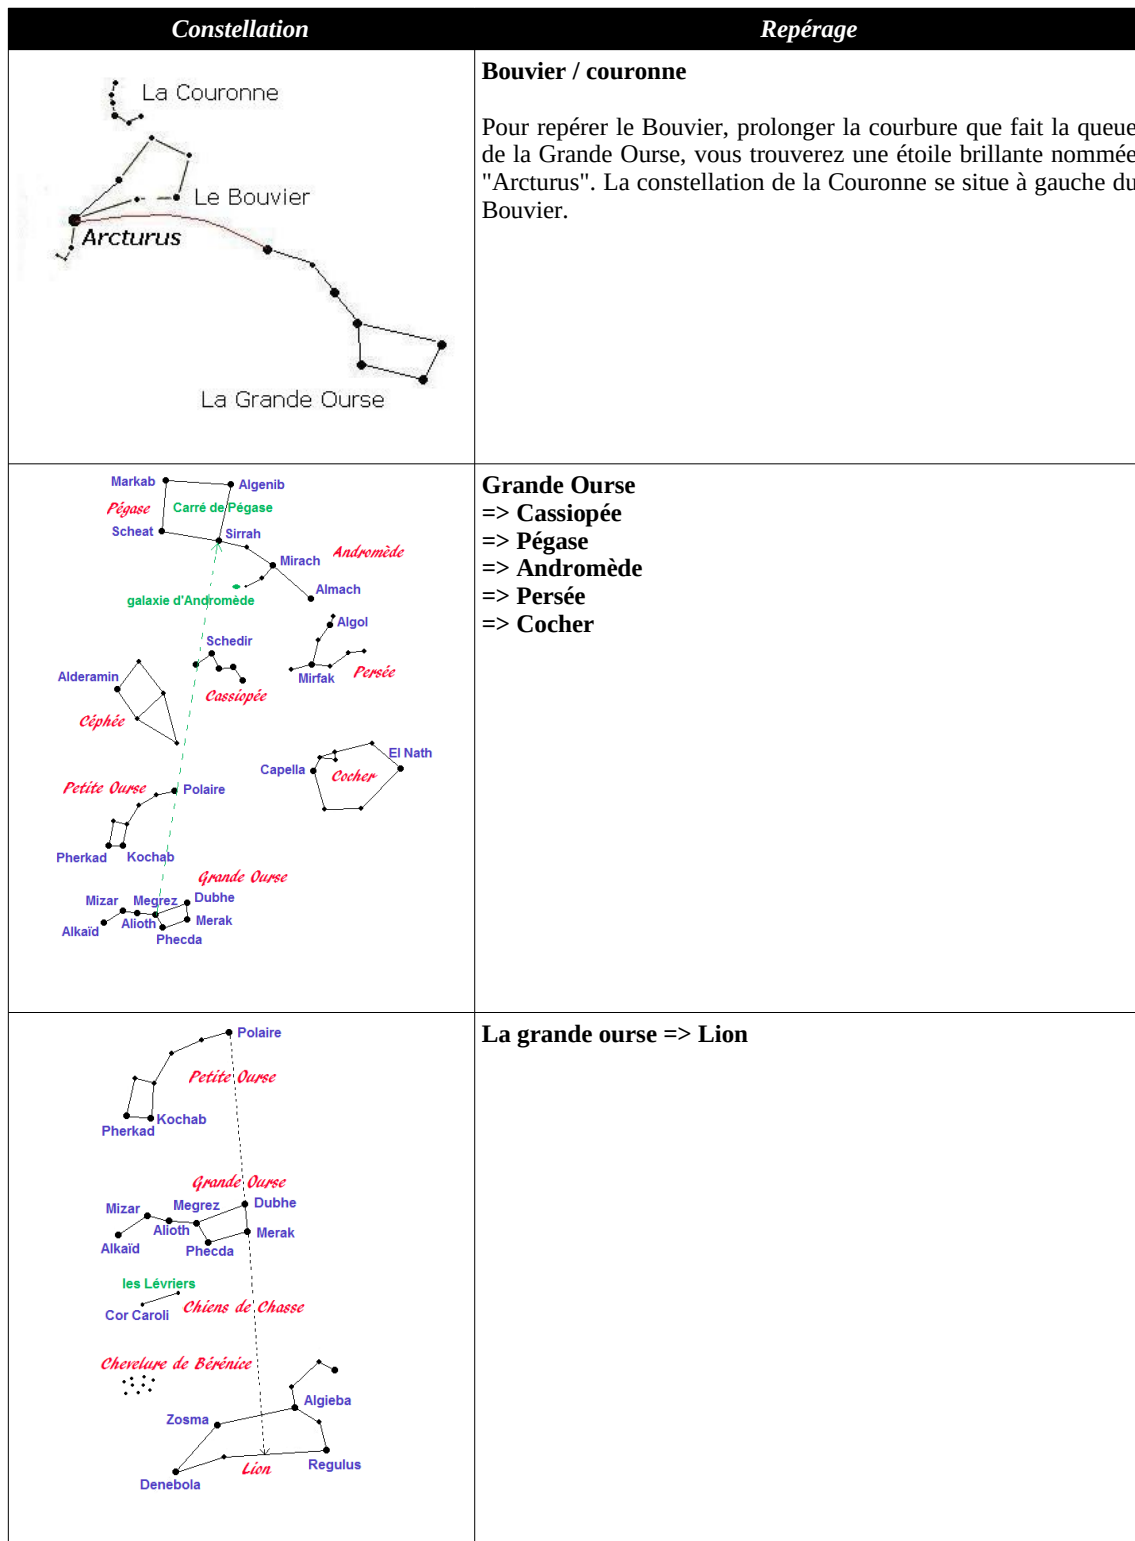 Constellation
Repérage
La Couronne
Le Bouvier
Arcturus
La Grande Ourse
Bouvier / couronne
Pour repérer le Bouvier, prolonger la courbure que fait la queue
de la Grande Ourse, vous trouverez une étoile brillante nommée
"Arcturus". La constellation de la Couronne se situe à gauche du
Bouvier.
Markab
Algenib
Pégase
Carré de Pégase
Scheat
Sirrah
Andromède
Mirach
Almach
galaxie d'Andromède
Algol
Schedir
Persée
Mirfak
Alderamin
Cassiopée
Céphée
El Nath
Capella
Cocher
Petite Ourse
Polaire
Pherkad
Kochab
Grande Ourse
Mizar
Megrez
Dubhe
Alkaïd
Alioth
Merak
Phecda
Grande Ourse
=> Cassiopée
=> Pégase
=> Andromède
=> Persée
=> Cocher
Polaire
Petite Ourse
Kochab
Pherkad
Grande Ourse
Mizar
Megrez
Dubhe
Alioth
Merak
Alkaïd
Phecda
les Lévriers
Cor Caroli
Chiens de Chasse
Chevelure de Bérénice
Algieba
Zosma
Lion
Regulus
Denebola
La grande ourse => Lion